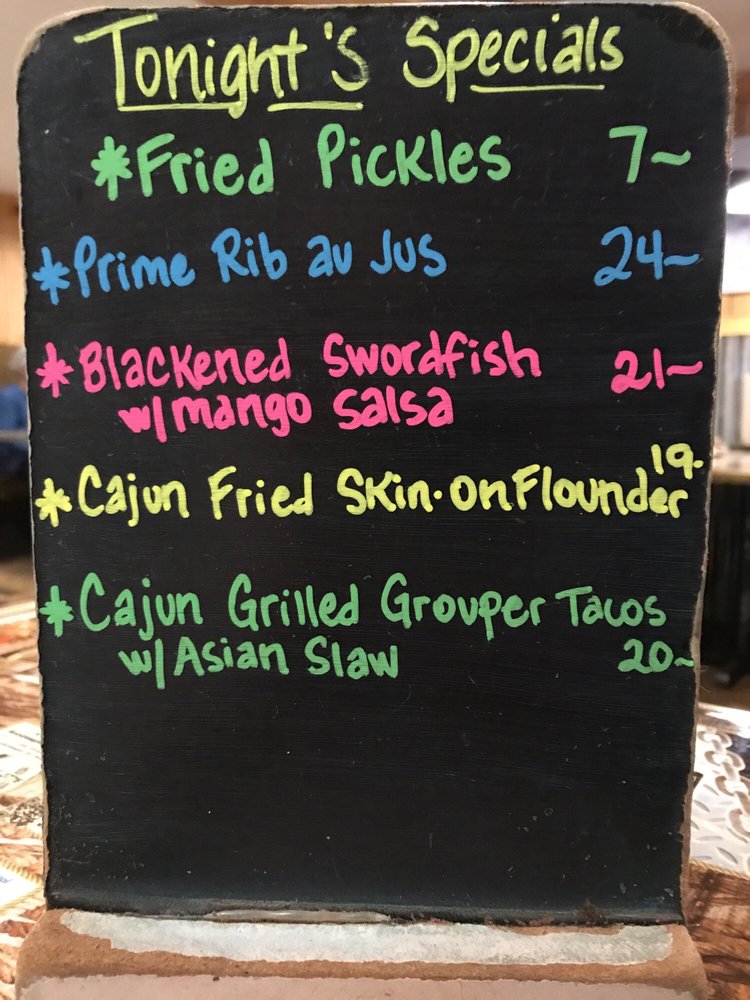 Tonight's Specials
*Fried Pickles 7~
*Prime Rib au Jus 24~
*Blackened Swordfish 21~
w/mango salsa
*Cajun Fried Skin-on Flounder 19-
*Cajun Grilled Grouper Tacos
w/Asian Slaw 20~